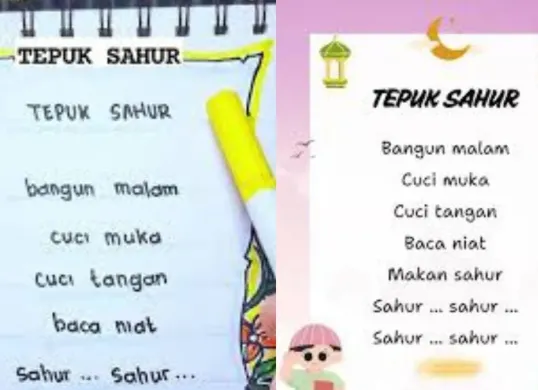 TEPUK SAHUR
TEPUK SAHUR
bangun malam
cuci muka
cuci tangan
baca niat
Sahur ... Sahur ...
TEPUK SAHUR
Bangun malam
Cuci muka
Cuci tangan
Baca niat
Makan sahur
Sahur ... sahur ...
Sahur ... sahur ...